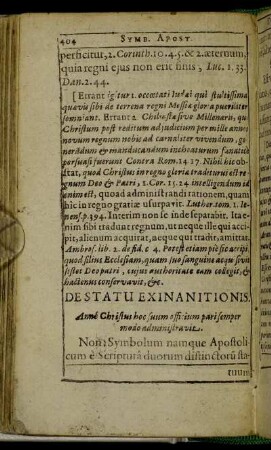 404 SYMB. APOST.
perficitur, 2. Corinth. 10. 4. 5. & 2. æternum,
quia regni ejus non erit finis, Luc. 1. 33.
Dan. 2. 44.
[Errant igitur 1. cæcutientes Judæi qui stultissima
quævis sibi de terrena regni Messiæ gloria pueriliter
somniant. Errant 2. Chiliastæ sive Millenarii, qui
Christum post reditum ad judicium per mille annos
novum regnum nobis ad carnaliter vivendum,
&
persuasi fuerunt Contra Rom. 14. 17. Nihil hic ob-
stat, quod Christus in regno gloriæ traditurus est re-
gnum Deo & Patri, 1. Cor. 15. 24 intelligendum id
enim est, quoad administrandi rationem, quam
hic in regno gratiæ usurpavit. Luther. tom. 1. Ie-
nens. p. 194. Interim non se inde separabit. Ita e-
nim sibi tradunt regnum, ut neque ille qui acci-
pit, alienum acquirat, neque qui tradit, amittat.
Ambros. lib. 2. de fid. c 4. Potest etiam piè sic accipi,
quod filius Ecclesiam, quam suo sanguine acquisivit
sistet Deo patri, cujus authoritate eam collegit, &
hactenus conservavit, &c.
DE STATU EXINANITIONIS.
Annè Christus hoc suum officium pari semper
modo administravit.
Non: Symbolum namque Apostoli-
cum è Scripturâ duorum distinctorũ sta-
tuum